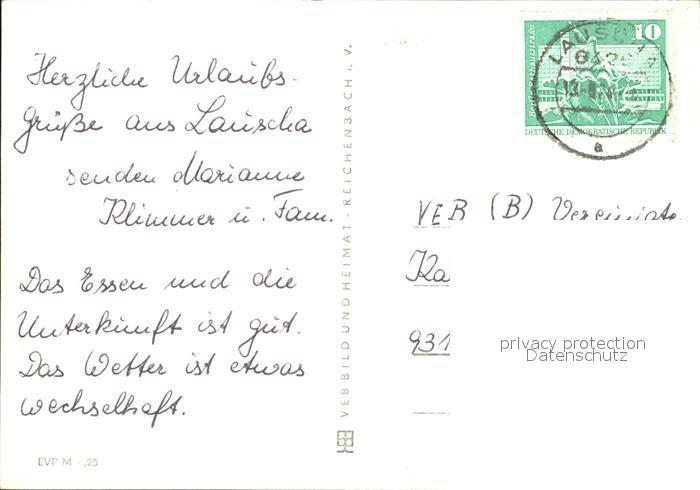 Herzliche Urlaubs-
grüße aus Lauscha
senden Marianne
Klimmer u. Fam.
Das Essen und die
Unterkunft ist gut.
Das Wetter ist etwas
wechselhaft.
EVP M -,25
VEB BILD UND HEIMAT · REICHENBACH i. V.
10
DEUTSCHE DEMOKRATISCHE REPUBLIK
LAUSCHA
a
VEB (B) Vereinigte
Ka
931
privacy protection
Datenschutz